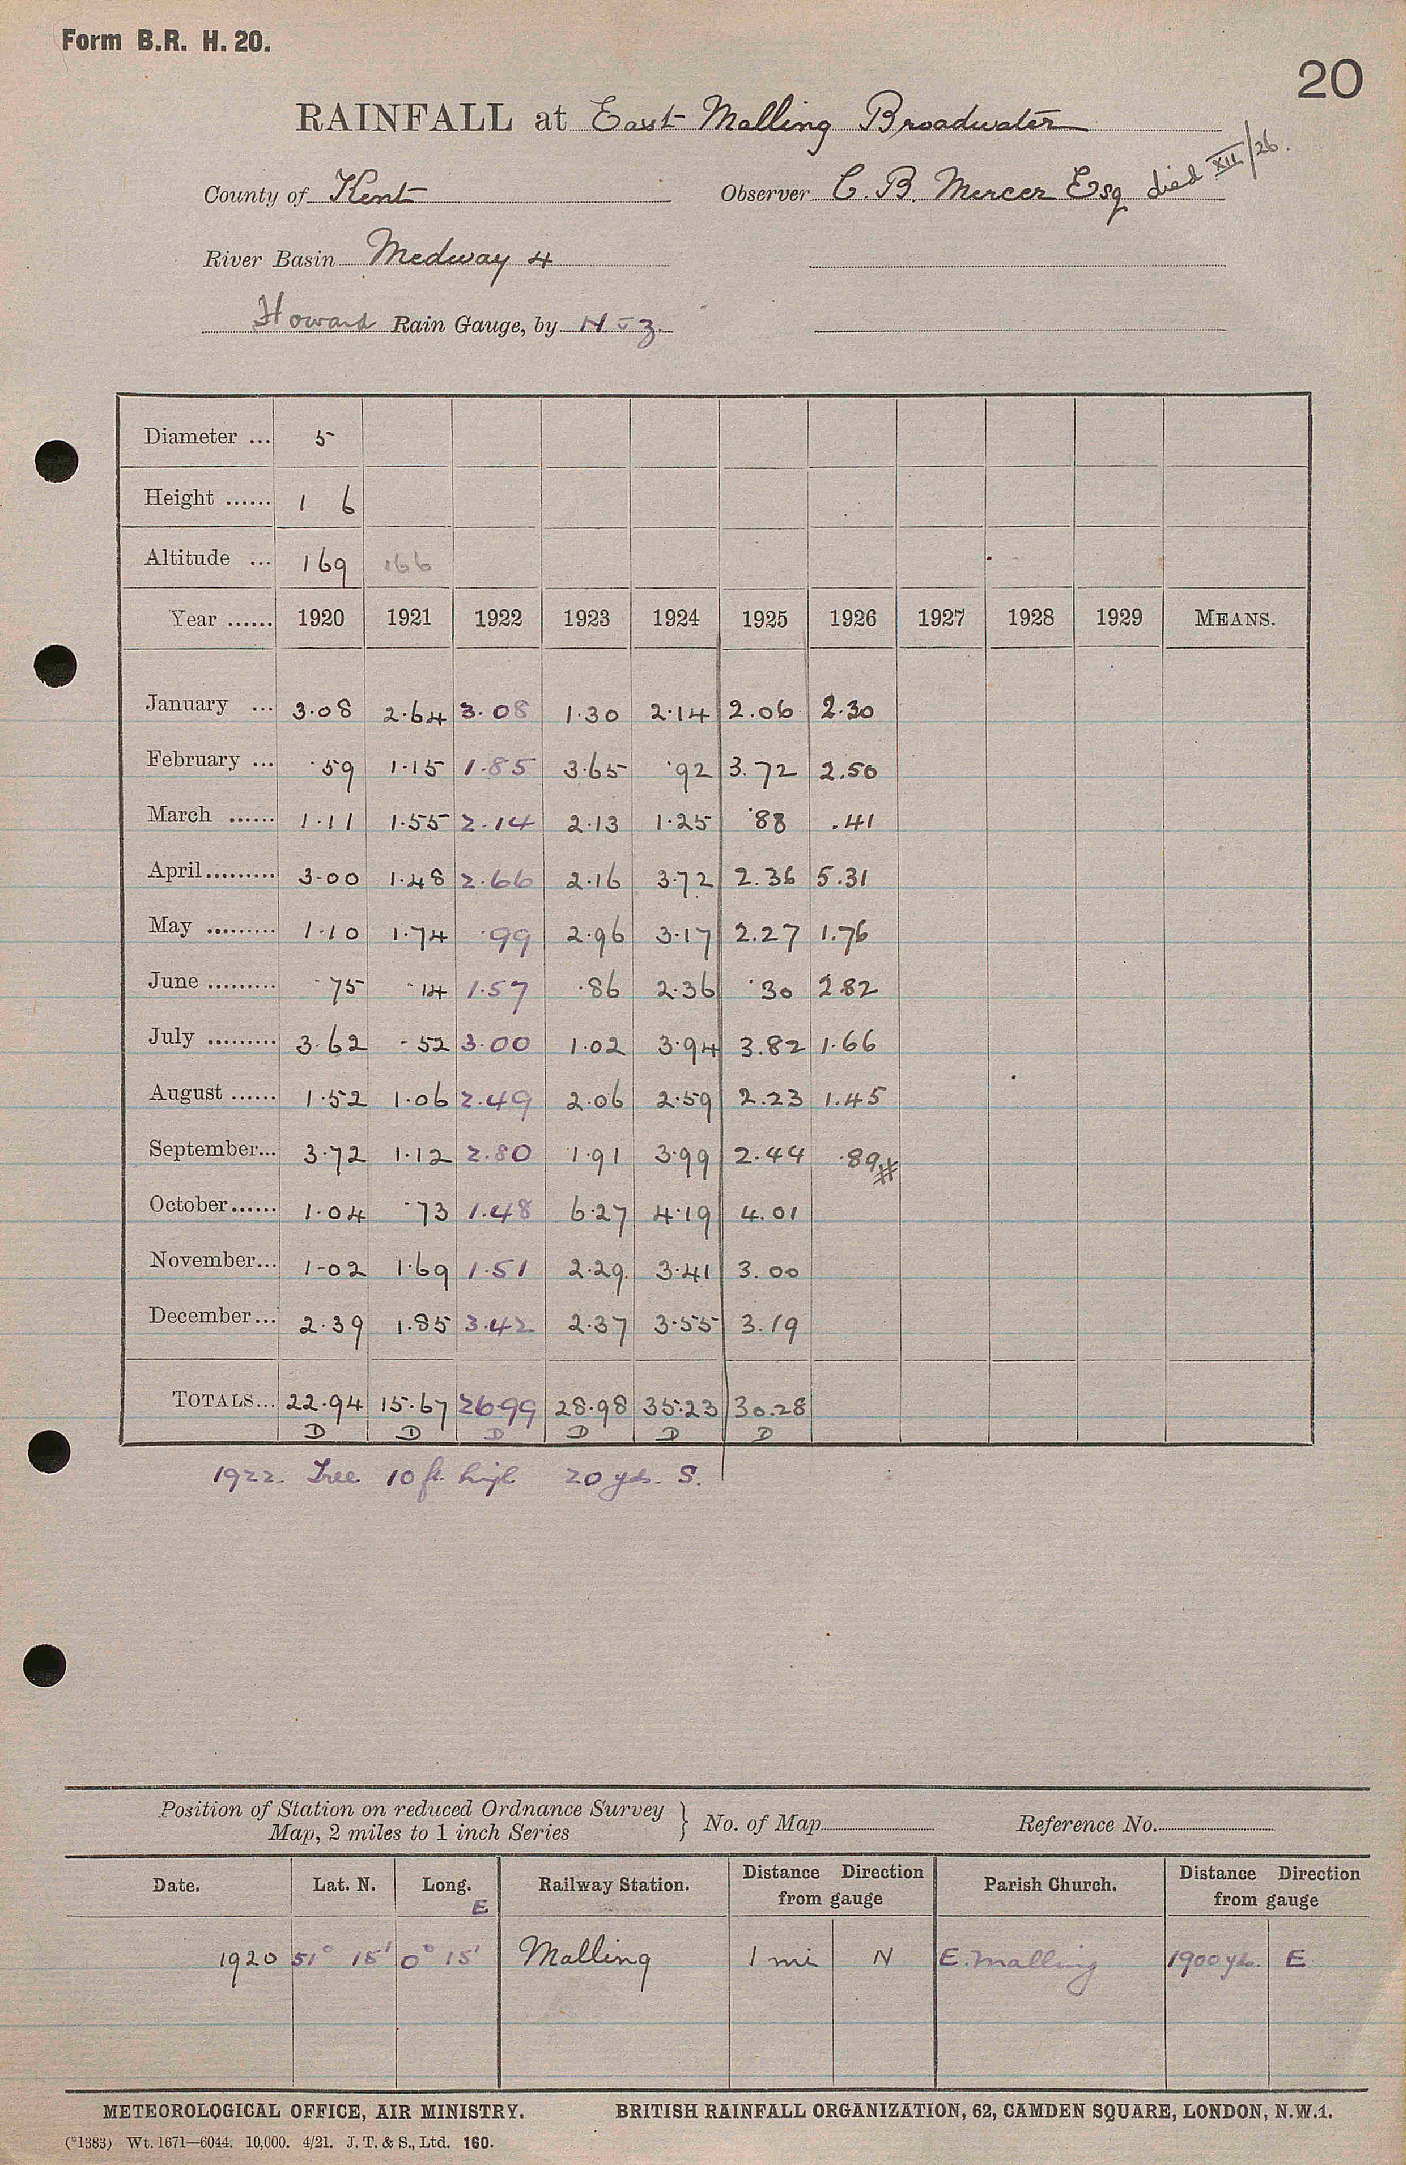 Form B.R. H. 20.
20
RAINFALL at East Malling Broadwater
County of Kent Observer C. B. Mercer Esq died XII/26.
River Basin Medway 4
Howard Rain Gauge, by N - Z
Diameter ... 5
Height ...... 1 6
Altitude ... 169 166
Year ...... 1920 1921 1922 1923 1924 1925 1926 1927 1928 1929 MEANS.
January ... 3.08 2.64 3.08 1.30 2.14 2.06 2.30
February ... .59 1.15 1.85 3.65 .92 3.72 2.50
March ...... 1.11 1.55 2.14 2.13 1.25 .88 .41
April ......... 3.00 1.48 2.66 2.16 3.72 2.36 5.31
May ......... 1.10 1.74 .99 2.96 3.17 2.27 1.76
June ......... .75 .14 1.57 .86 2.36 .30 2.82
July ......... 3.62 .52 3.00 1.02 3.94 3.82 1.66
August ...... 1.52 1.06 2.49 2.06 2.59 2.23 1.45
September... 3.72 1.12 2.80 1.91 3.99 2.44 .89#
October...... 1.04 .73 1.48 6.27 4.19 4.01
November... 1.02 1.69 1.51 2.29 3.41 3.00
December... 2.39 1.85 3.42 2.37 3.55 3.19
TOTALS... 22.94 15.67 26.99 28.98 35.23 30.28
D D D D D D
1922. Tree 10 ft. high 20 yds. S.
Position of Station on reduced Ordnance Survey
Map, 2 miles to 1 inch Series } No. of Map Reference No.
Date. Lat. N. Long. E Railway Station. Distance Direction from gauge Parish Church. Distance Direction from gauge
1920 51° 18' 0° 15' Malling 1 mi N E. Malling 1900 yds. E
METEOROLOGICAL OFFICE, AIR MINISTRY. BRITISH RAINFALL ORGANIZATION, 62, CAMDEN SQUARE, LONDON, N.W.1.
(*1383) Wt. 1671—6044. 10,000. 4/21. J. T. & S., Ltd. 160.